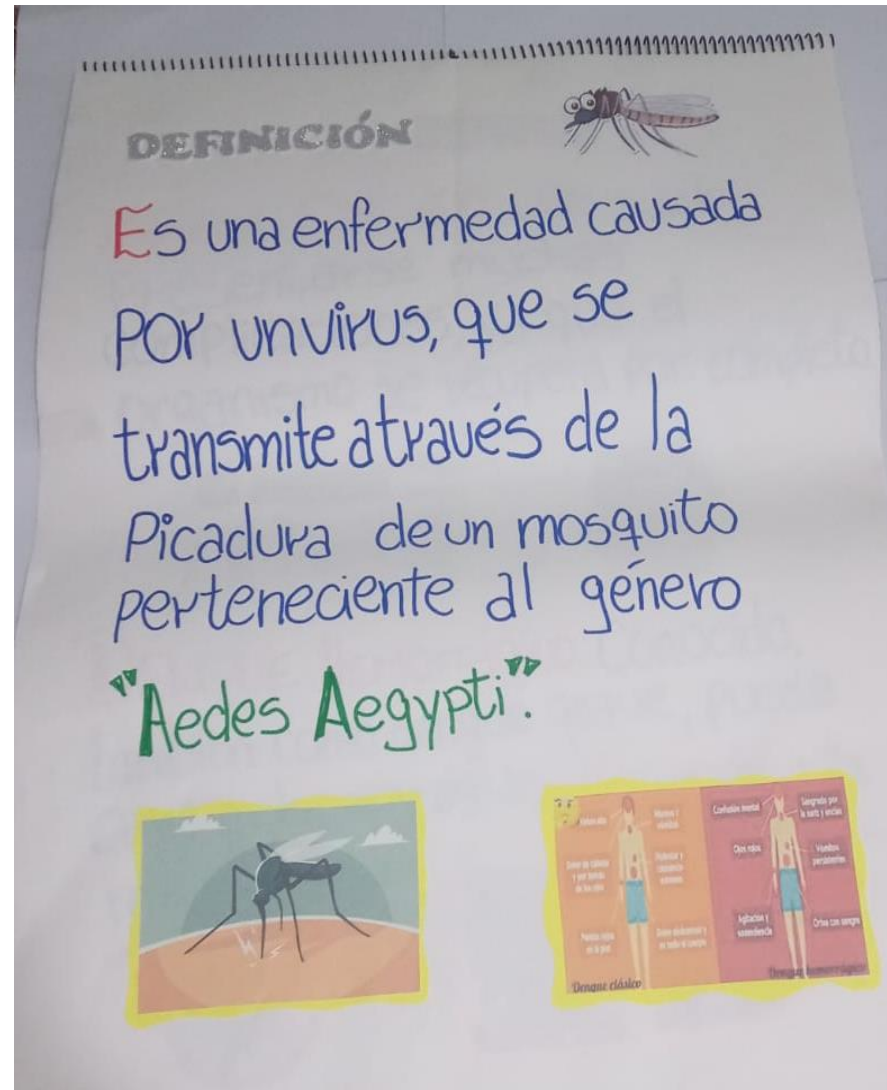 DEFINICIÓN
Es una enfermedad causada
Por un virus, que se
transmite a través de la
Picadura de un mosquito
perteneciente al género
"Aedes Aegypti".
Confusión mental
Sangrado por
la nariz y encías
Ojos rojos
Vómitos
persistentes
Agitación y
somnolencia
Orina con sangre
Dolor de cabeza
y por detrás
de los ojos
Dolor abdominal y
en todo el cuerpo
Dengue clásico
Dengue hemorrágico